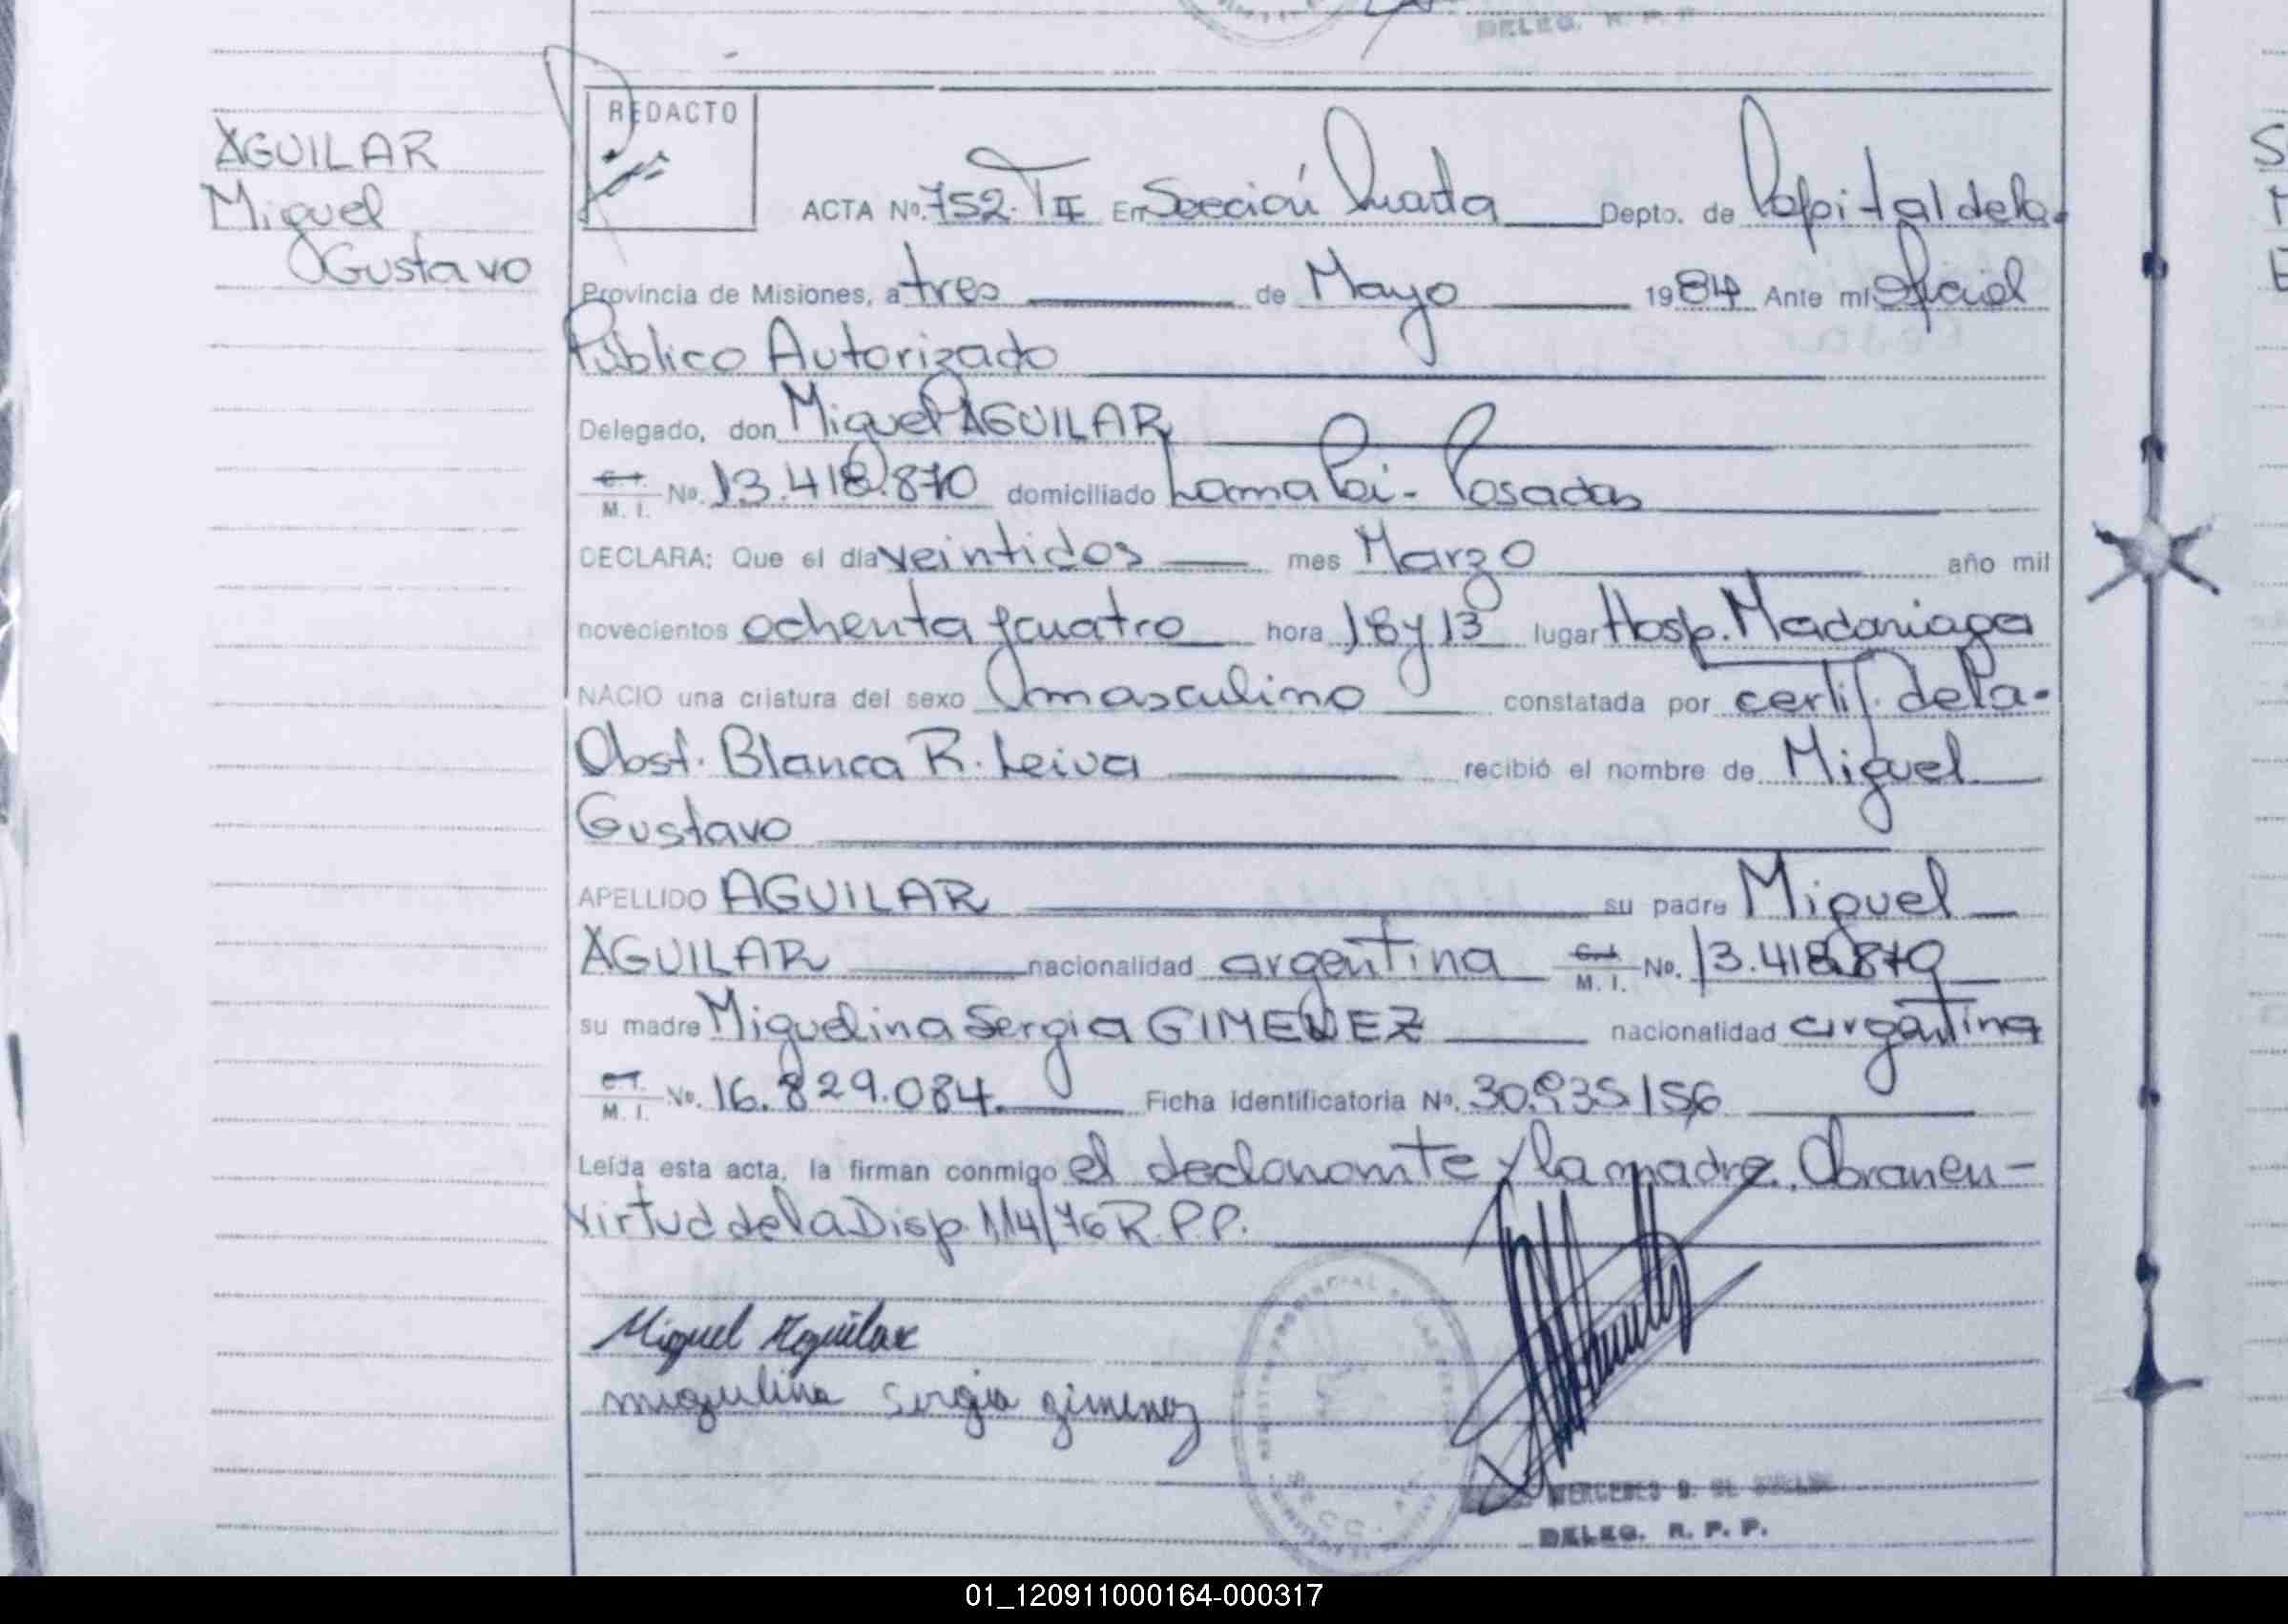 DELEG. R. P. P.
AGUILAR
Miguel
Gustavo
REDACTO
ACTA No. 752. T II En Sección Cuarta Depto. de Capital de la
Provincia de Misiones, a tres de Mayo 1984 Ante mí Oficial
Público Autorizado
Delegado, don Miguel AGUILAR
C.I. M. I. No. 13.418.870 domiciliado Loma Poi - Posadas
DECLARA: Que el día veintidos mes Marzo año mil
novecientos ochenta y cuatro hora 18 y 13 lugar Hosp. Madariaga
NACIO una criatura del sexo masculino constatada por certif. de la
Obst. Blanca R. Leiva recibió el nombre de Miguel
Gustavo
APELLIDO AGUILAR su padre Miguel
AGUILAR nacionalidad argentina C.I. M. I. No. 13.418.870
su madre Miguelina Sergia GIMENEZ nacionalidad argentina
C.I. M. I. No. 16.829.084. Ficha Identificatoria No. 30.935.156
Leída esta acta, la firman conmigo el declarante y la madre. Obran en
virtud de la Disp. 114/76 R.P.P.
Miguel Aguilar
miguelina Sergia gimenez
MERCEDES
DELEG. R. P. P.
01_120911000164-000317